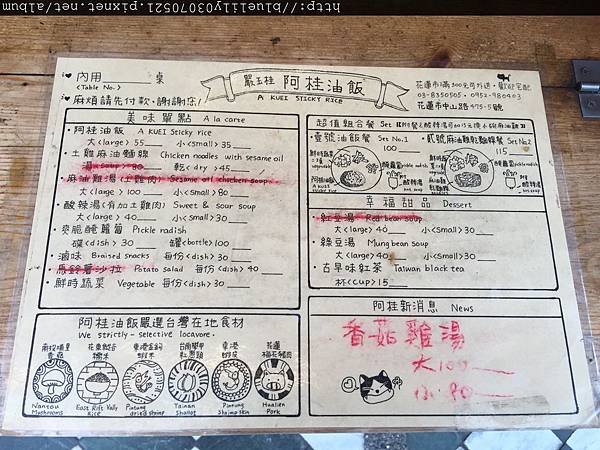 http://bluelilly03070521.pixnet.net/album/
♥內用____桌
<Table No.>
♥麻煩請先付款,謝謝您!
嚴玉桂 阿桂油飯
A KUEI STICKY RICE
03-8350505・0952-980403
花蓮市中山路475-5號
美味單點 A la carte
・阿桂油飯 A KUEI Sticky rice
大<large> 55 小<small> 35
・土雞麻油麵線 Chicken noodles with sesame oil
湯<soup> 90 乾<dry> 45
・麻油雞湯(土雞肉) Sesame oil chicken soup
大<large> 100 小<small> 80
・酸辣湯(有加土雞肉) Sweet & sour soup
大<large> 40 小<small> 30
・爽脆醃蘿蔔 Pickle radish
碟<dish> 30 罐<bottle> 100
・滷味 Braised snacks 每份<dish> 30
・馬鈴薯沙拉 Potato salad 每份<dish> 40
・鮮時蔬菜 Vegetable 每份<dish> 30
超值組合餐 Set
・壹號油飯餐 Set No.1
100
・貳號麻油雞乾麵線餐 Set No.2
阿桂油飯
A KUEI
Sticky rice
酸辣湯
酸辣湯
幸福甜品 Dessert
・紅豆湯 Red bean soup
大<large> 40 小<small> 30
・綠豆湯 Mung bean soup
大<large> 40 小<small> 30
・古早味紅茶 Taiwan black tea
杯<cup> 15
阿桂油飯嚴選台灣在地食材
We strictly-selective locavore.
南投埔里 香菇
花東縱谷 糯米
東港金鉤 蝦米
台南學甲 紅蔥頭
東港 蝦皮
花蓮 梅花豬肉
Nantou Mushrooms
East Rift Vally Rice
Pintung dried shrimp
Tainan Shallot
Pintung Shrimp skin
Hualien Pork
阿桂新消息 News
香菇雞湯
大100
小80